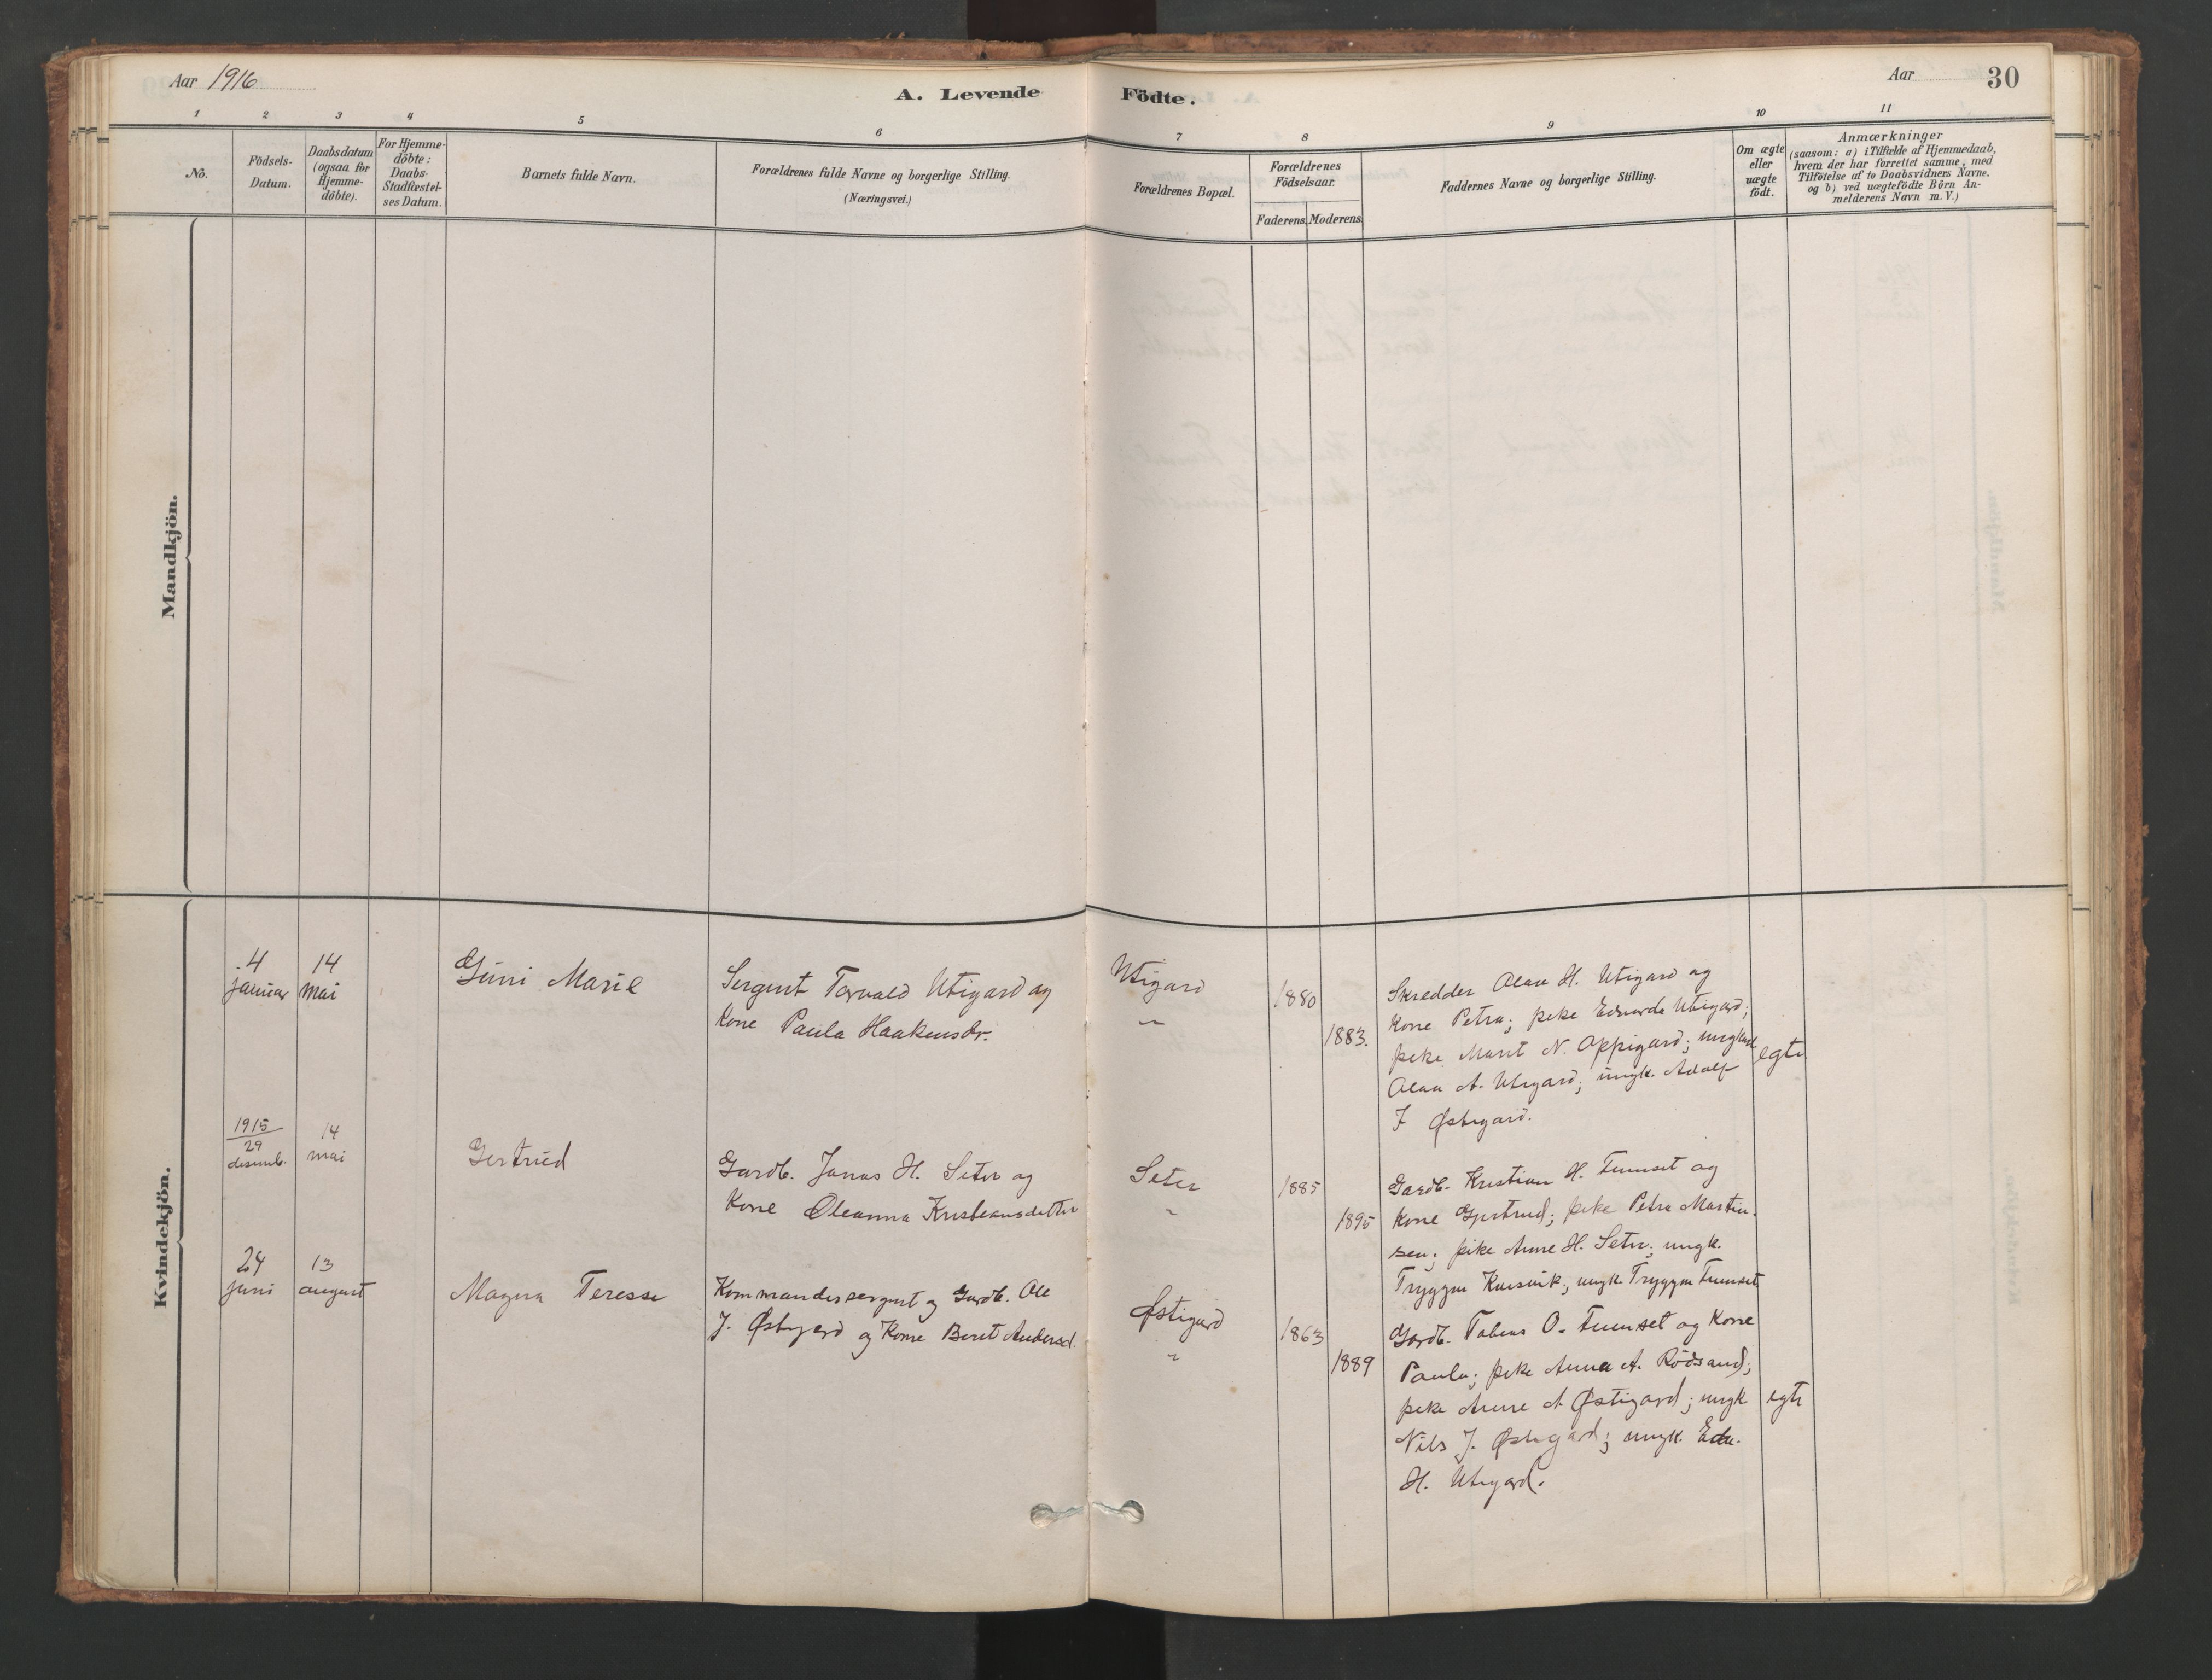 Aar 1916
A. Levende Födte.
Aar
30
1 2 3 4 5 6 7 8 9 10 11
No.
Födsels-
Datum.
Daabsdatum
(ogsaa för
Hjemme-
döbte).
For Hjemme-
döbte:
Daabs-
Stadfæstel-
ses Datum.
Barnets fulde Navn.
Forældrenes fulde Navne og borgerlige Stilling.
(Næringsvei.)
Forældrenes Bopæl.
Forældrenes
Födselsaar.
Faderens. Moderens.
Faddernes Navne og borgerlige Stilling.
Om ægte
eller
uægte
födt.
Anmærkninger
(saasom: a) i Tilfælde af Hjemmedaab,
hvem der har forrettet samme, med
Tilföielse af to Daabsvidners Navne.
og b) ved uægtefödte Börn An-
melderens Navn m.V.)
Mandkjön.
Kvindekjön.
4
januar
14
mai
Guni Marie
Sergent Torvald Utigard og
Kone Paula Haakensdr.
Utigard
"
1880
1883.
Skredder Olaa H. Utigard og
Kone Petra; pike Edvarda Utigard;
pike Marit N. Oppigard;
Olaa A. Utigard; ungk. Adolf
J Østigard.
egte
1915
29
desemb.
14
mai
Gertrud
Gardb. Jonas H. Seter og
Kone Oleanna Kristiansdatter
Seter
"
1885
1895
Gardb. Kristian H. Tumset og
Kone Gjertrud; pike Petra Martin-
sen; pike Anne H. Seter; ungk.
Tryggve; ungk. Tryggve Tumset
24
juni
13
august
Magna Terese
Kommandersergent og Gardb. Ole
J. Østigard og Kone Beret Andersd.
Østigard
"
1863
1889
Gardb. Tobias O. Tumset og Kone
Paula; pike Anna A. Rödsand;
pike Anne A Østigard; ungk
Nils J. Østigard; ungk. Edv.
H. Utigard.
egte